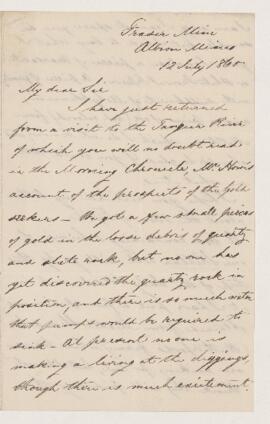 Fraser Mine
Albion Mines
12 July 1860
My dear Sir
I have just returned
from a visit to the Tangier River
of which you will no doubt read
in the Morning Chronicle, Mr Howe's
account of the prospects of the Gold
seekers — We got a few small pieces
of gold in the loose debris of quartz
and slate rock, but no one has
yet discovered the quartz rock in
position, and there is so much water
that pumps would be required to
sink — At present no one is
making a living at the diggings,
though there is much excitement.